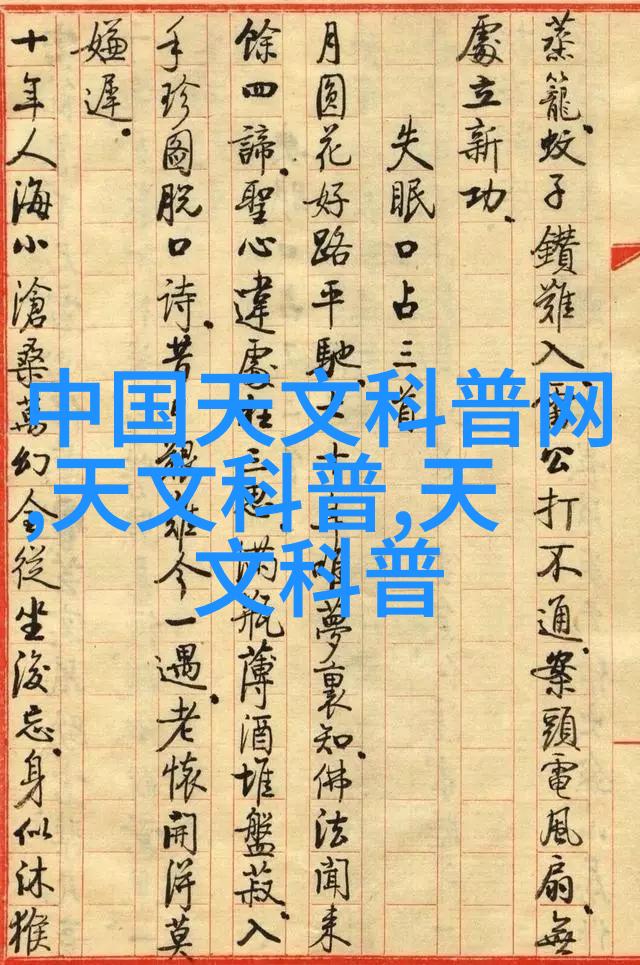 中国天文科普网
,天文科普,天
文科普
蒸籠。蚊子鑽難入。公打不通。案頭電風扇。無
處立新功。
失眠口占三首
月圓花好路平馳。年夢裏知。佛法聞来
餘四諦。聖心違處三滿瓶薄酒堆盤菽。入
手珍圖脫口詩。昔今一遇。老懷開得莫
嫌遲。
十年人海小滄桑萬幻全從坐後忘。身似沐猴